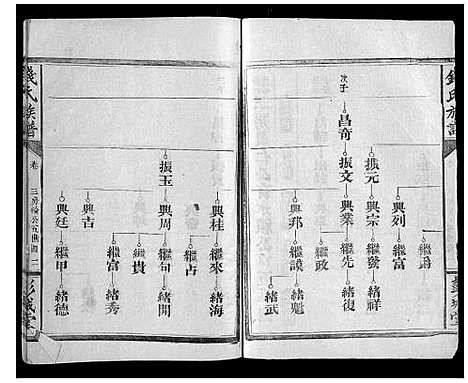 錢氏族譜
次子
昌奇
振元
振文
興列
興宗
興業
興邦
繼富
繼號
繼先
繼政
緒祥
緒復
緒彪
緒武
彭城堂
錢氏族譜
卷
三房
公五世圖
二
振玉
興桂
興周
興吉
興廷
繼來
繼占
繼句
繼貴
繼富
繼甲
緒海
緒開
緒秀
緒德
彭城堂